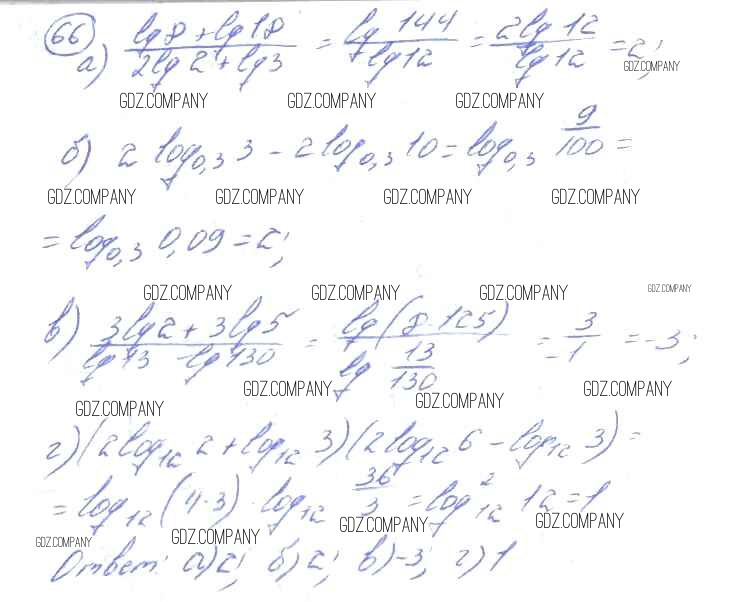 66
а) (lg 8 + lg 18)/(2lg 2 + lg 3) = lg 144/lg 12 = 2lg 12/lg 12 = 2;
GDZ.COMPANY
GDZ.COMPANY GDZ.COMPANY GDZ.COMPANY
б) 2 log₀,₃ 3 - 2 log₀,₃ 10 = log₀,₃ 9/100 =
GDZ.COMPANY GDZ.COMPANY GDZ.COMPANY GDZ.COMPANY
= log₀,₃ 0,09 = 2;
GDZ.COMPANY GDZ.COMPANY GDZ.COMPANY GDZ.COMPANY
в) (3lg 2 + 3lg 5)/(lg 13 - lg 130) = lg(8·125)/lg 13/130 = 3/-1 = -3;
GDZ.COMPANY GDZ.COMPANY GDZ.COMPANY
GDZ.COMPANY
г) (2log₁₂ 2 + log₁₂ 3)(2log₁₂ 6 - log₁₂ 3) =
= log₁₂ (4·3) · log₁₂ 36/3 = log²₁₂ 12 = 1
GDZ.COMPANY GDZ.COMPANY GDZ.COMPANY GDZ.COMPANY
Ответ: а) 2; б) 2; в) -3; г) 1